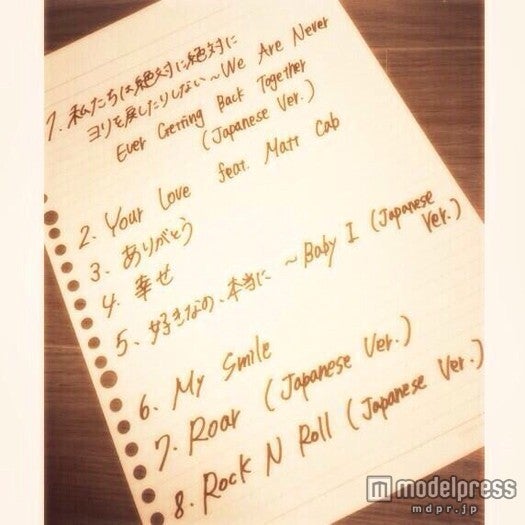 1. 私たちは絶対に絶対に
ヨリを戻したりしない～We Are Never
Ever Getting Back Together
(Japanese Ver.)
2. Your Love feat. Matt Cab
3. ありがとう
4. 幸せ
5. 好きなの、本当に ～Baby I (Japanese
Ver.)
6. My Smile
7. Roar (Japanese Ver.)
8. Rock N Roll (Japanese Ver.)
modelpress
mdpr.jp